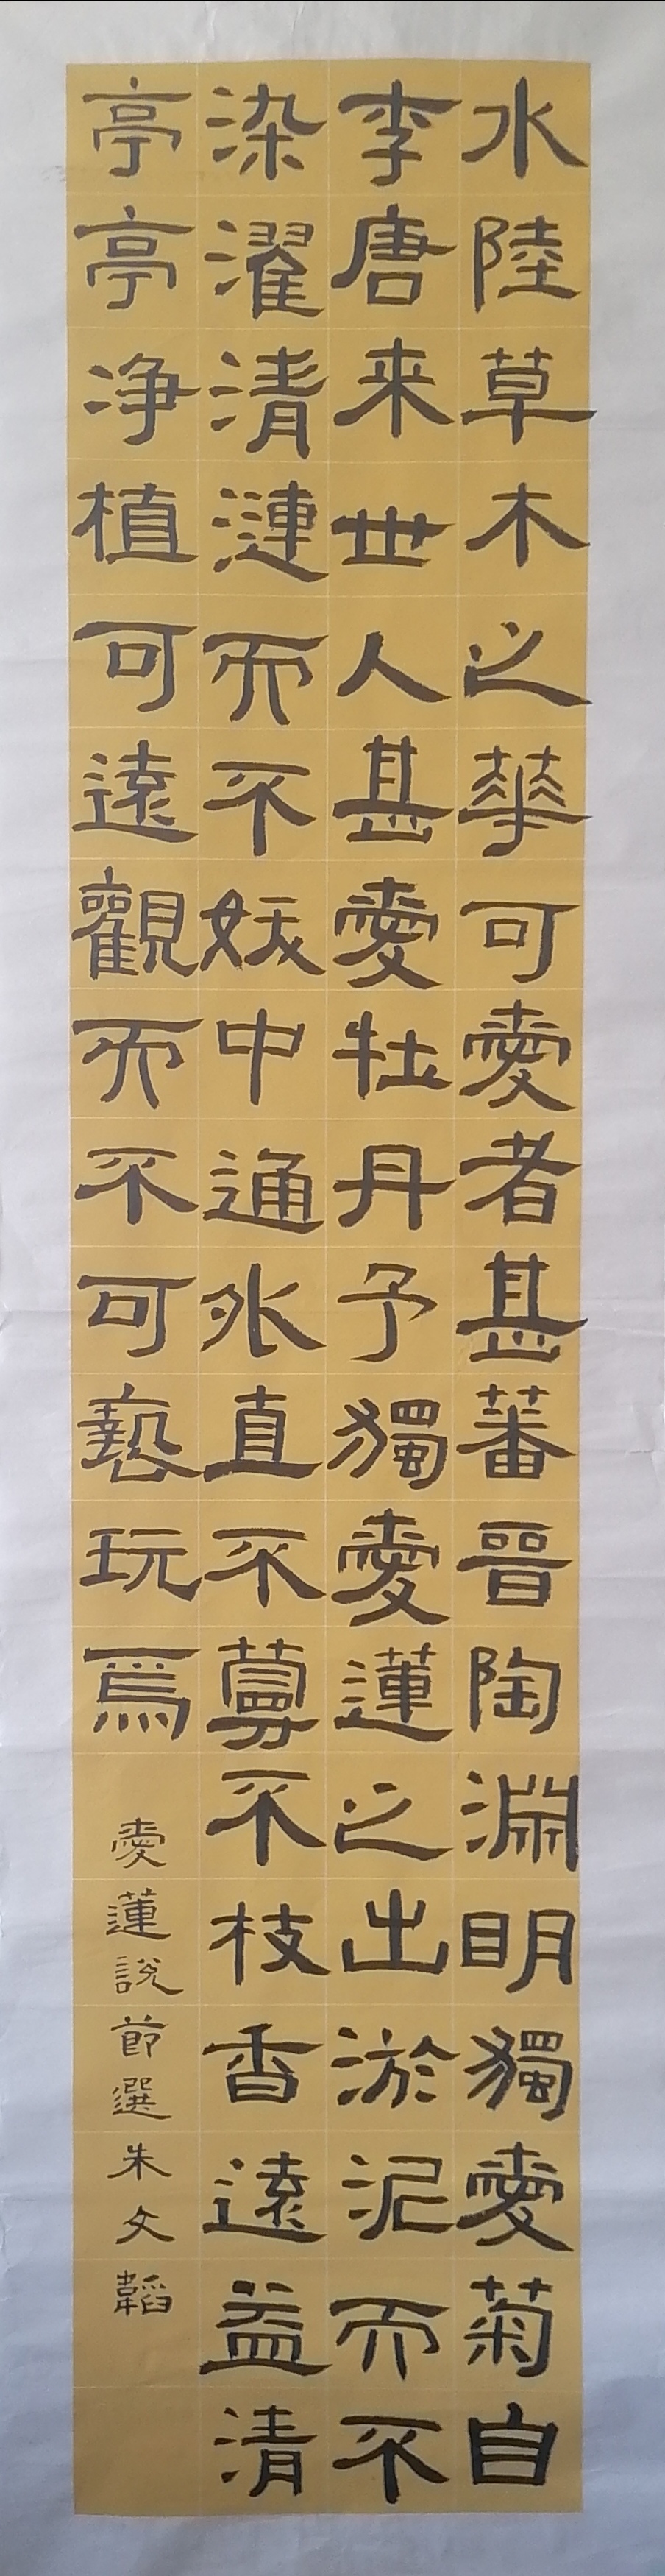 水陸草木之華可愛者甚蕃晉陶淵明獨愛菊自
李唐来世人甚愛牡丹予獨愛蓮之出淤泥而不
染濯清漣而不妖中通外直不蔓不枝香遠益清
亭亭净植可遠觀而不可褻玩焉
愛蓮說節選朱文韜